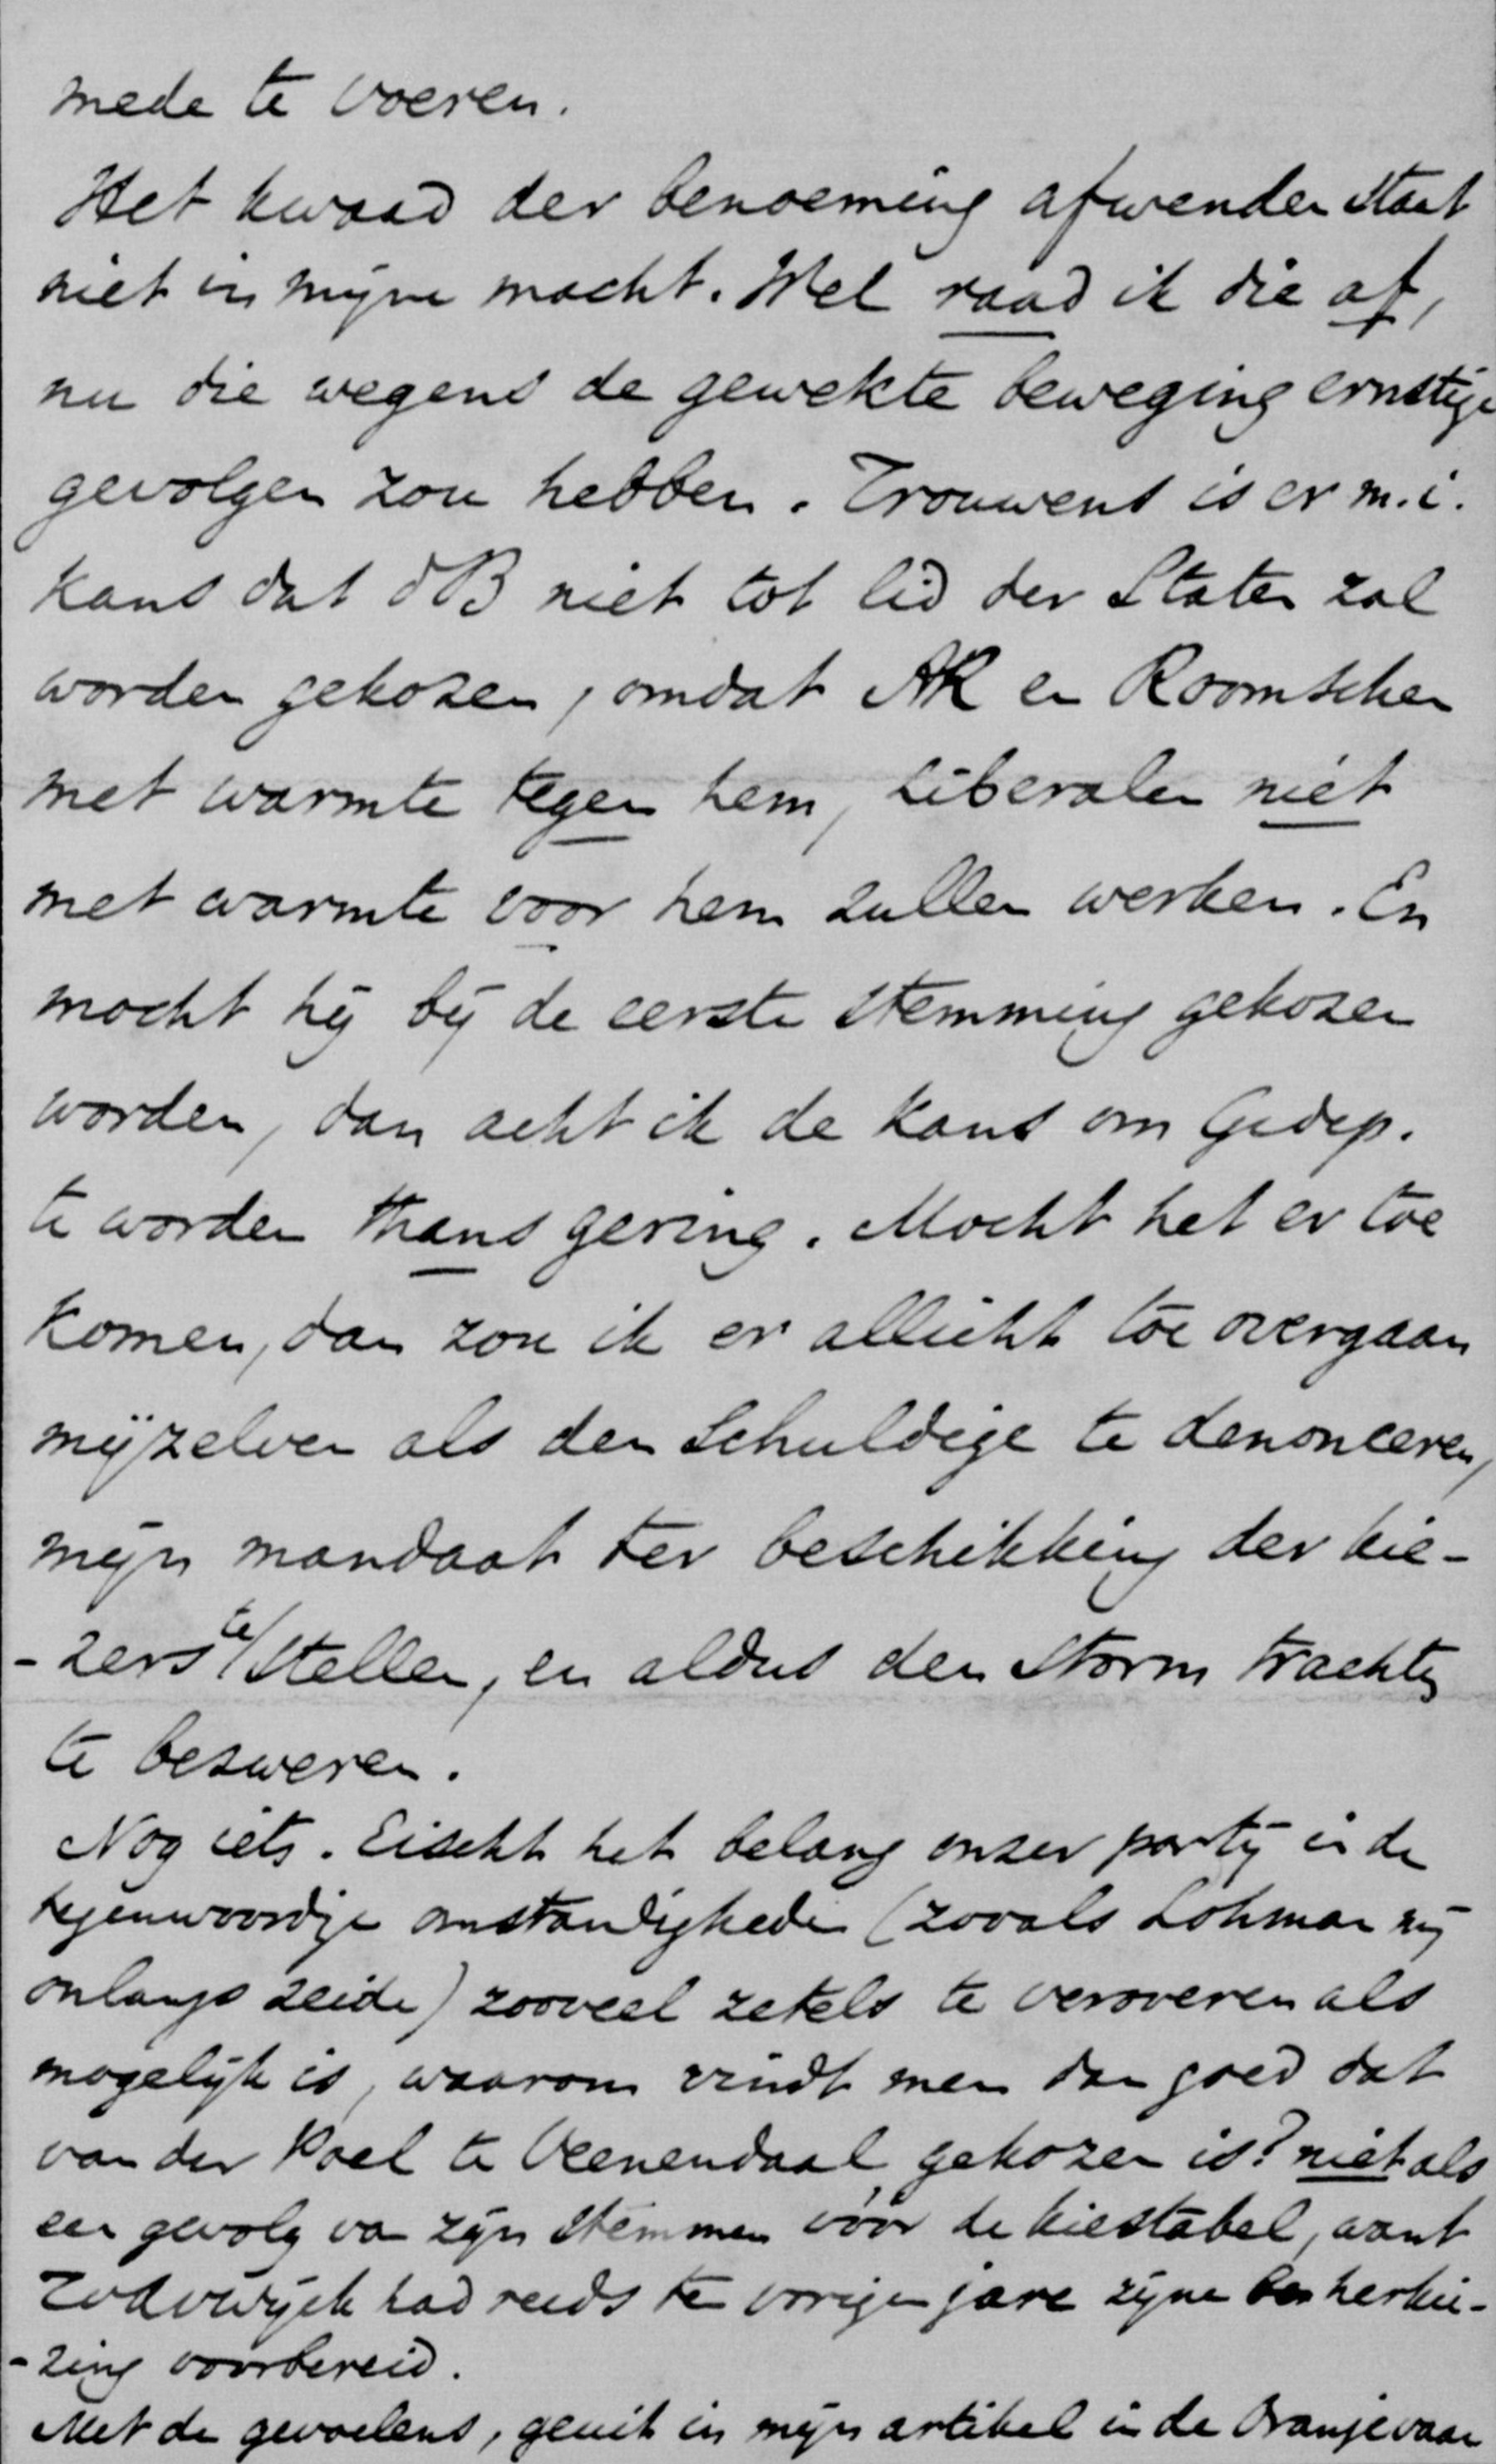 mede te voeren.
Het kwaad der benoeming afwenden staat
niet in mijne macht. Wel raad ik die af,
nu die wegens de gewekte beweging ernstige
gevolgen zou hebben. Trouwens is er m.i.
kans dat dB niet tot lid der Staten zal
worden gekozen, omdat AR en Roomschen
met warmte tegen hem, Liberalen niet
met warmte voor hem zullen werken. En
mocht hij bij de eerste stemming gekozen
worden, dan acht ik de kans om Gedep.
te worden thans gering. Mocht het er toe
komen, dan zou ik er allicht toe overgaan
mijzelven als den schuldige te denonceren,
mijn mandaat ter beschikking der kie-
-zers te stellen, en aldus den storm trachten
te bezweren.
Nog iets. Eischt het belang onzer partij in de
tegenwoordige omstandigheden (zooals Lohman mij
onlangs zeide) zooveel zetels te veroveren als
mogelijk is, waarom vindt men dan goed dat
van der Poel te Veenendaal gekozen is? niet als
een gevolg van zijn stemmen vóór de kiestabel, want
had reeds te vorigen jare zijne herkie-
-zing voorbereid.
Met de gevoelens, geuit in mijn artikel in de Oranjevaan